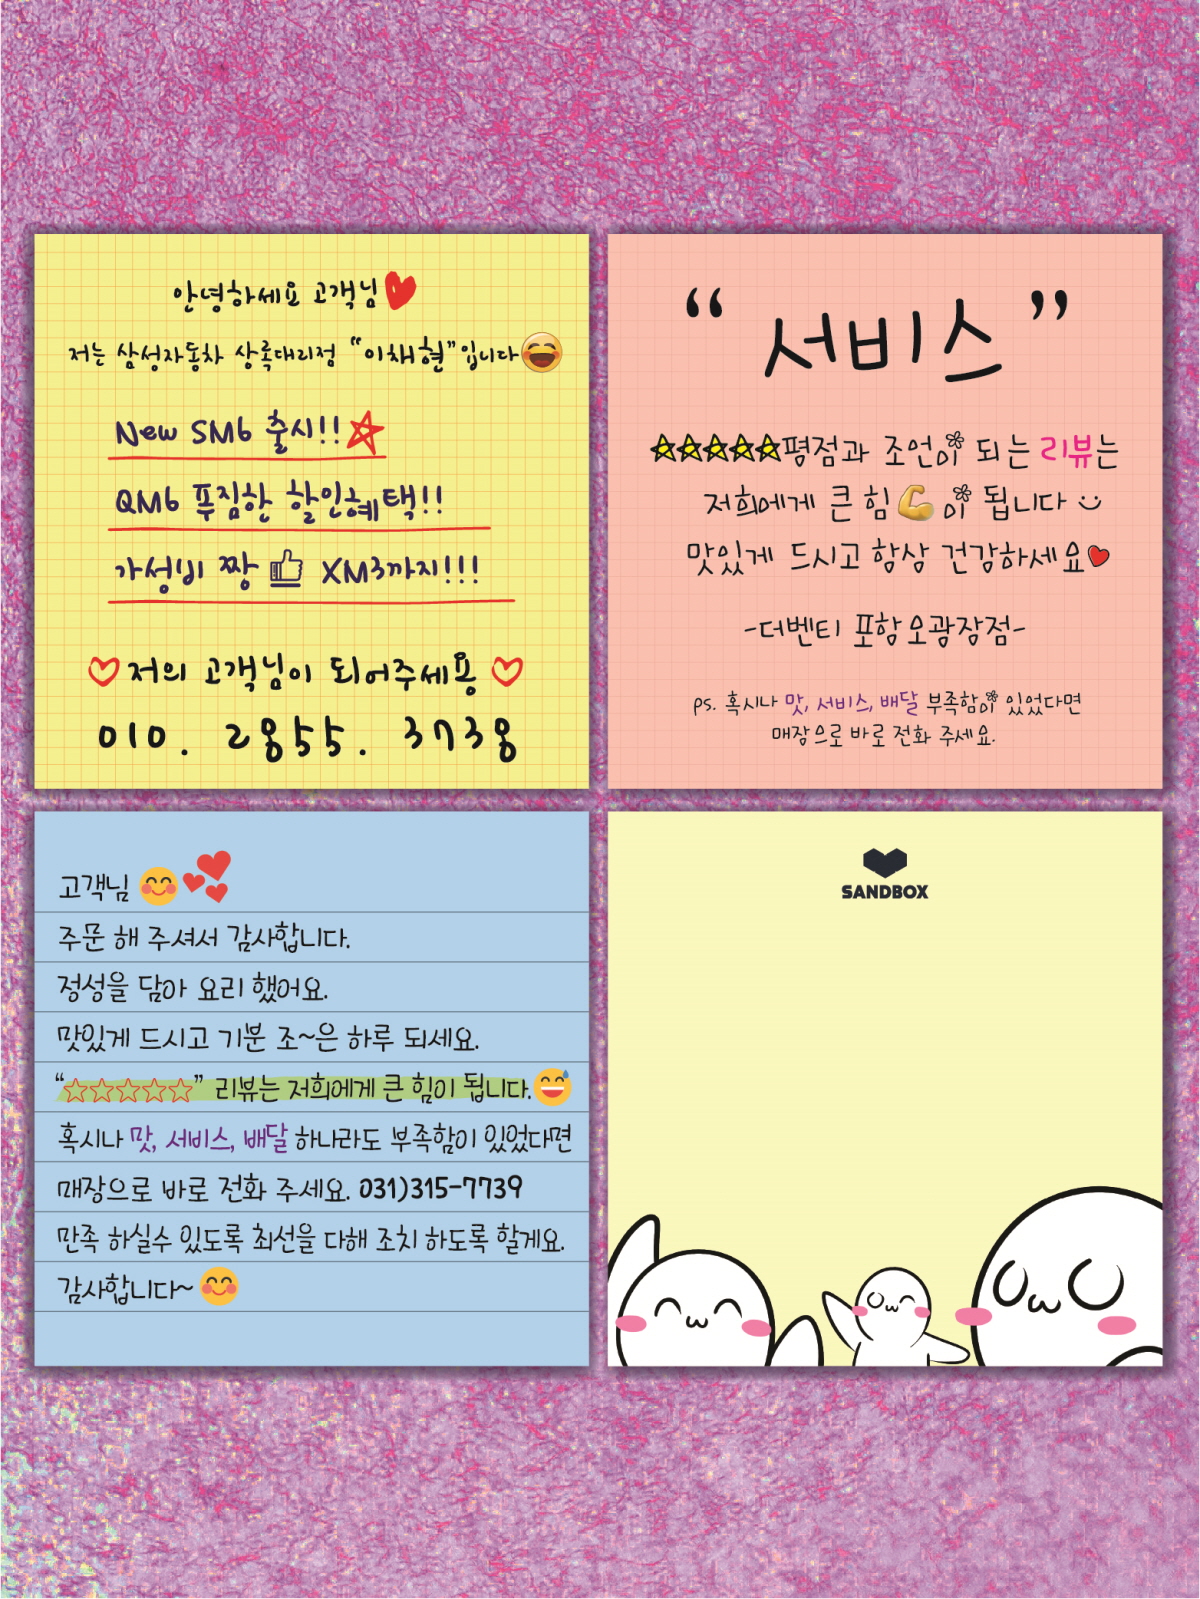 안녕하세요 고객님
저는 삼성자동차 상록대리점 "이채현"입니다
New SM6 출시!!
QM6 푸짐한 할인혜택!!
가성비 짱 XM3까지!!!
저의 고객님이 되어주세용
010. 2855. 3738
"서비스"
평점과 조언이 되는 리뷰는
저희에게 큰 힘이 됩니다
맛있게 드시고 항상 건강하세요
-더벤티 포항오광장점-
ps. 혹시나 맛, 서비스, 배달 부족함이 있었다면
매장으로 바로 전화 주세요.
고객님
주문 해 주셔서 감사합니다.
정성을 담아 요리 했어요.
맛있게 드시고 기분 조~은 하루 되세요.
"☆☆☆☆☆" 리뷰는 저희에게 큰 힘이 됩니다.
혹시나 맛, 서비스, 배달 하나라도 부족함이 있었다면
매장으로 바로 전화 주세요. 031)315-7739
만족 하실수 있도록 최선을 다해 조치 하도록 할게요.
감사합니다~
SANDBOX